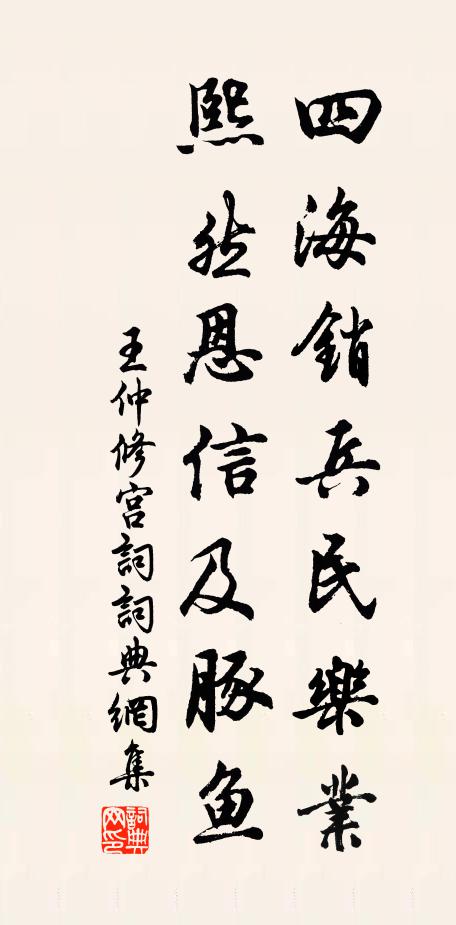 四海銷兵民樂業
熙然恩信及豚鱼
王仲修宫詞詞典網集
詞典网印